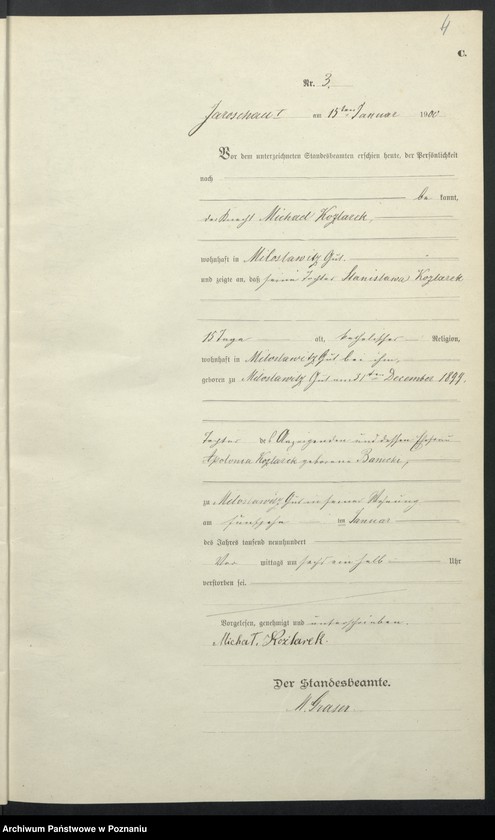 4
C.
Nr. 3.
am 15ten Januar 1900
Vor dem unterzeichneten Standesbeamten erschien heute, der Persönlichkeit
nach
be kannt,
der Knecht Michael Kozlarek,
wohnhaft in Miloslawitz Gut.
und zeigte an, daß seine Tochter Stanislawa Kozlarek
15 Tage alt, katholischer Religion,
wohnhaft in Miloslawitz Gut bei ihm,
geboren zu Miloslawitz Gut am 31ten December 1899.
Tochter des Anzeigenden und dessen Ehefrau
Apolonia Kozlarek geborene
zu Miloslawitz Gut in seiner Wohnung
am fünfzehn ten Januar
des Jahres tausend neunhundert
Vor mittags um sechs ein halb Uhr
verstorben sei.
Vorgelesen, genehmigt und unterschrieben.
Michał Kozlarek.
Der Standesbeamte.
Archiwum Państwowe w Poznaniu